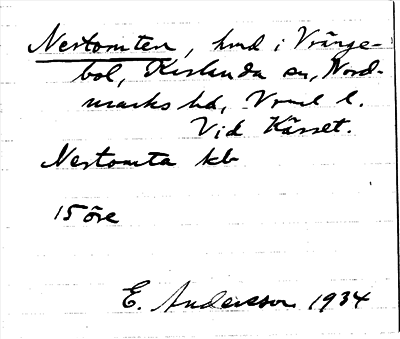 Nertomten, hmd i Vrånge-
bol, Karlanda sn, Nord-
marks hd, Vrml l.
Vid Kärret.
Nertomta kb
15 öre
E. Andersson 1934